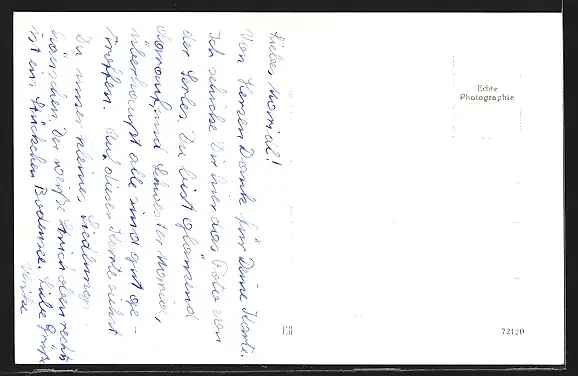 Liebes Mariali!
Von Herzen Dank für Deine Karte.
Ich schicke Dir hier das Foto von
der Soler. Du bist glänzend
darauf, und Schwester Maria,
überhaupt alle sind gut ge-
troffen. Auf dieser Karte siehst
Du unser kleines Siedlungs-
häuschen. Der weiße Strich oben rechts
ist ein Stückchen Bodensee. Liebe Grüße
Echte
Photographie
72120